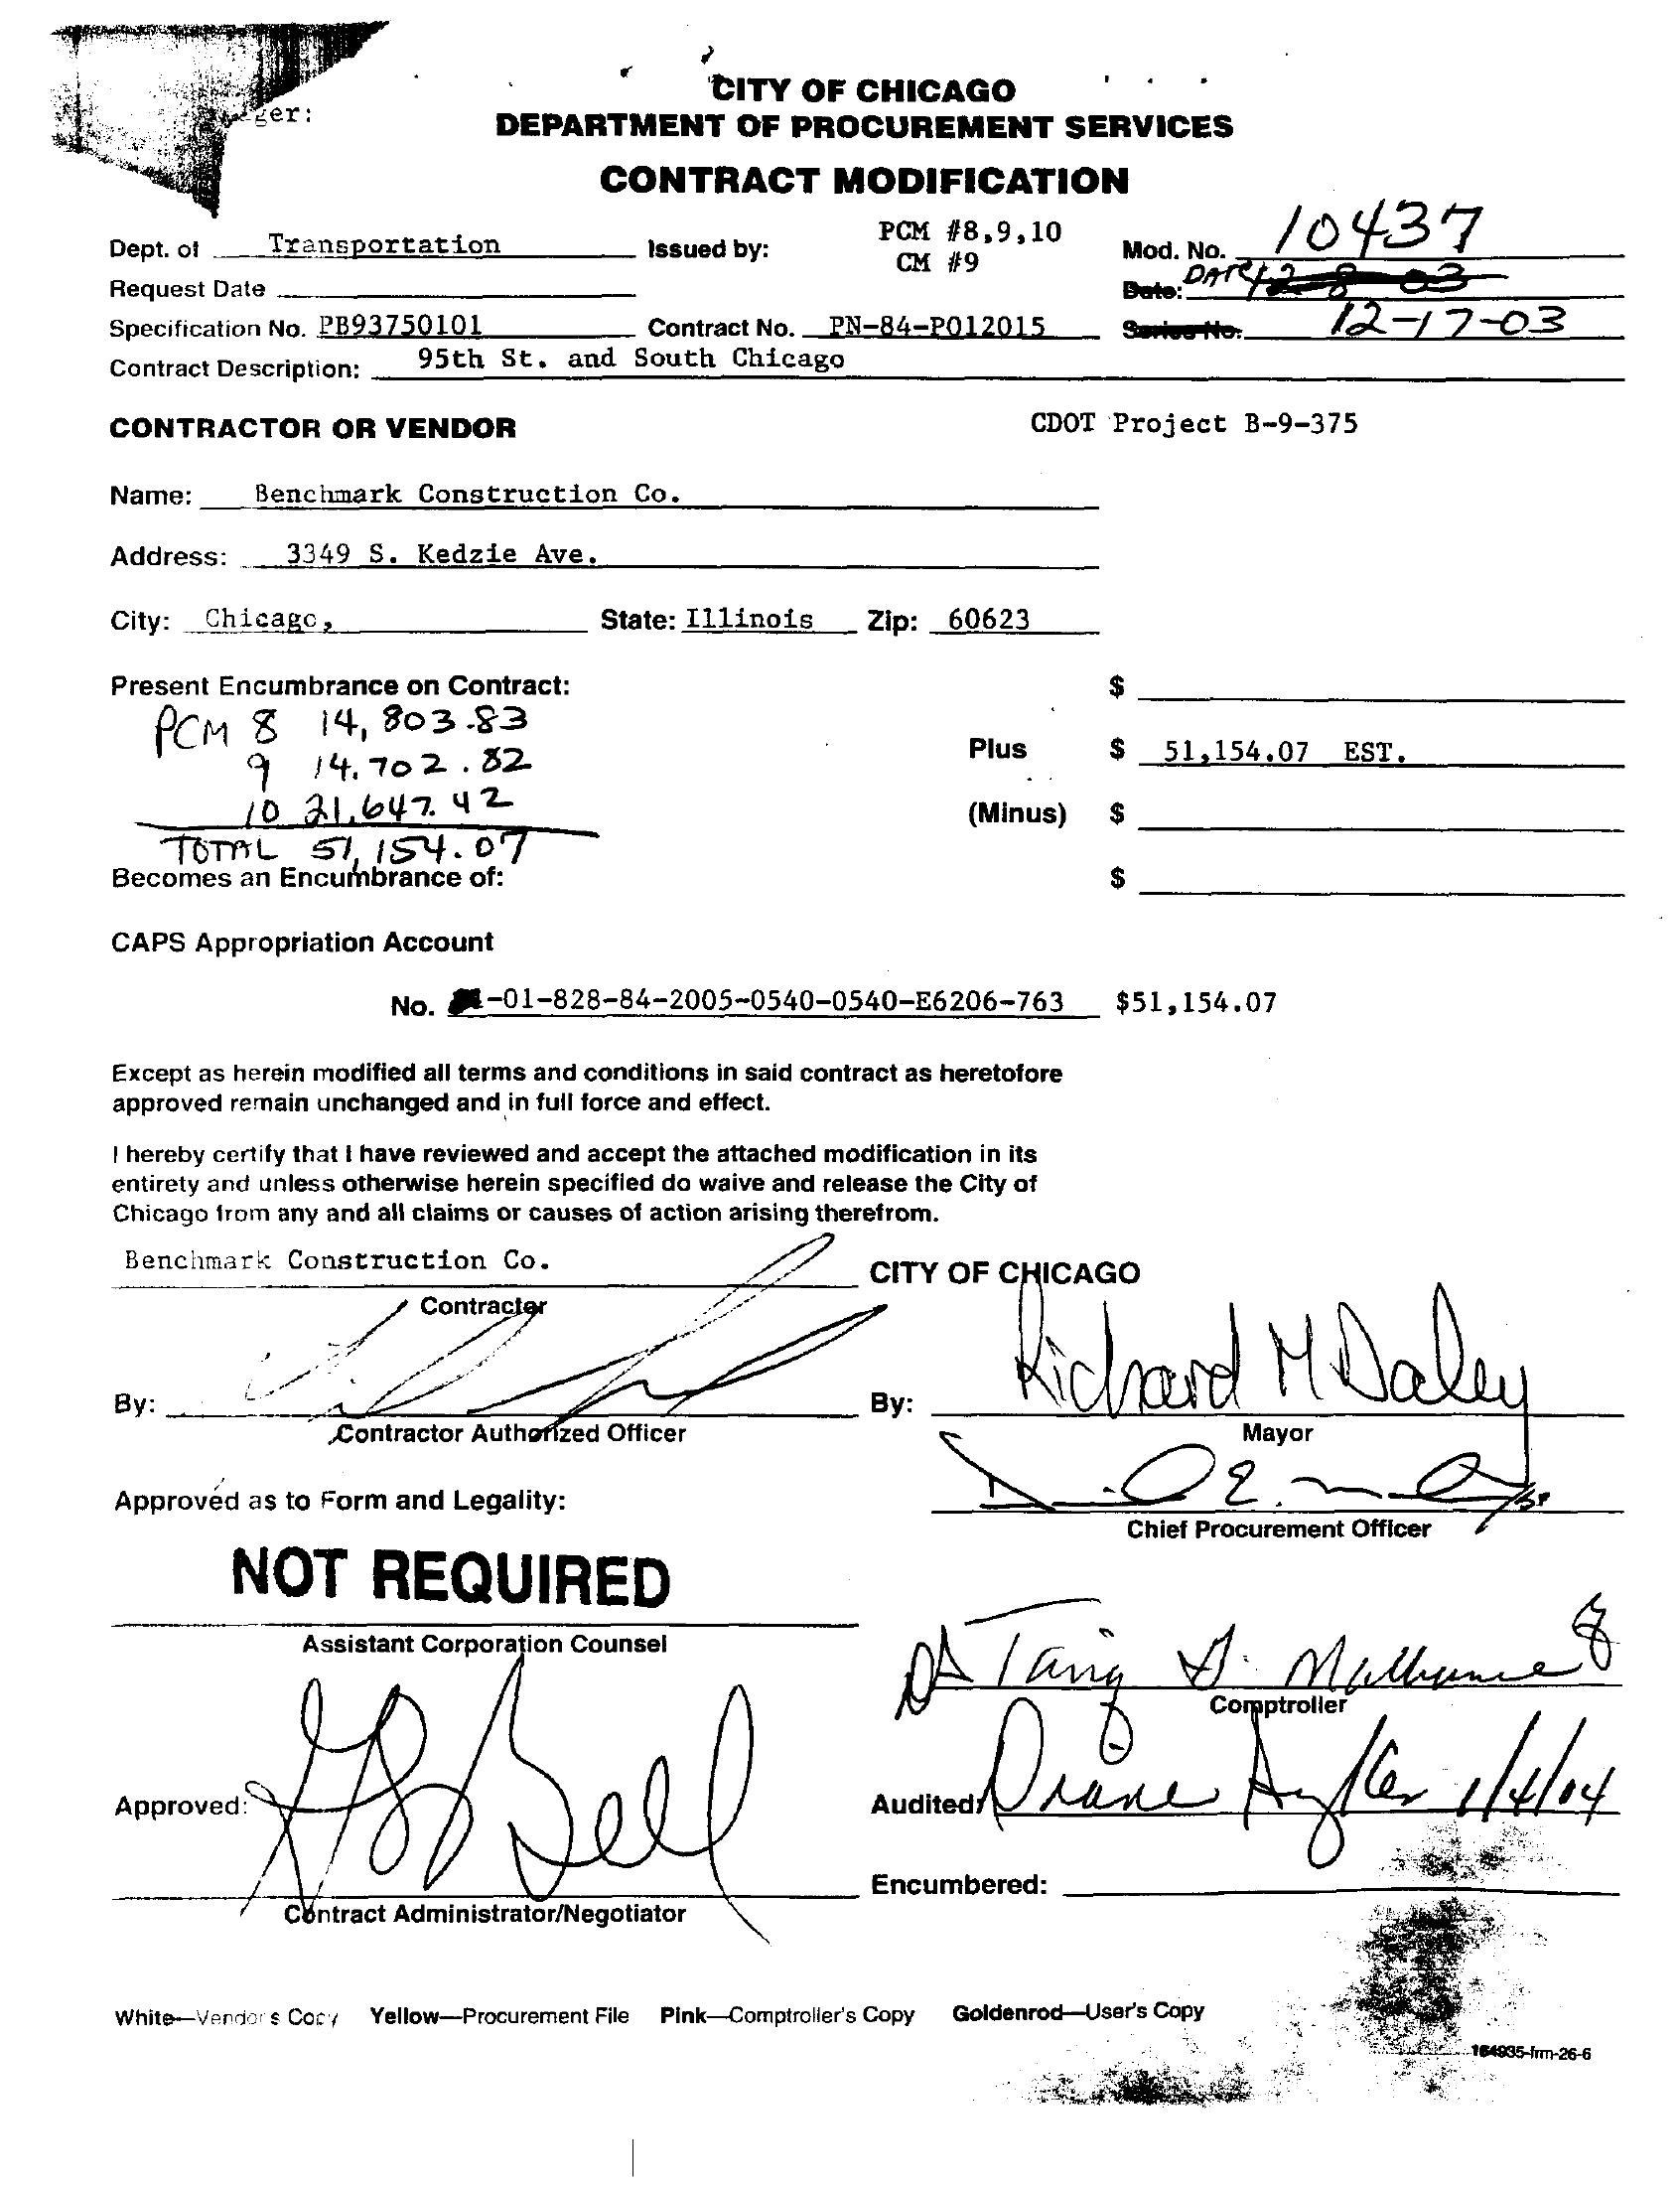 ger:
CITY OF CHICAGO
DEPARTMENT OF PROCUREMENT SERVICES
CONTRACT MODIFICATION
Dept. of Transportation Issued by: PCM #8,9,10 Mod. No. 10437
CM #9
Request Date Date: DATE 12-8-03
Specification No. PB93750101 Contract No. PN-84-P012015 Series No. 12-17-03
Contract Description: 95th St. and South Chicago
CONTRACTOR OR VENDOR CDOT Project B-9-375
Name: Benchmark Construction Co.
Address: 3349 S. Kedzie Ave.
City: Chicago, State: Illinois Zip: 60623
Present Encumbrance on Contract: $
PCM 8 14,803.83
9 14.702.82 Plus $ 51,154.07 EST.
10 21,647.42 (Minus) $
TOTAL 51,154.07
Becomes an Encumbrance of: $
CAPS Appropriation Account
No. -01-828-84-2005-0540-0540-E6206-763 $51,154.07
Except as herein modified all terms and conditions in said contract as heretofore
approved remain unchanged and in full force and effect.
I hereby certify that I have reviewed and accept the attached modification in its
entirety and unless otherwise herein specified do waive and release the City of
Chicago from any and all claims or causes of action arising therefrom.
Benchmark Construction Co. CITY OF CHICAGO
Contractor
By: By: Richard M Daley
Contractor Authorized Officer Mayor
Approved as to Form and Legality:
Chief Procurement Officer
NOT REQUIRED
Assistant Corporation Counsel
Comptroller
Approved: Audited: Diane 1/4/04
Encumbered:
Contract Administrator/Negotiator
White—Vendor's Copy Yellow—Procurement File Pink—Comptroller's Copy Goldenrod—User's Copy
164935-frm-26-6